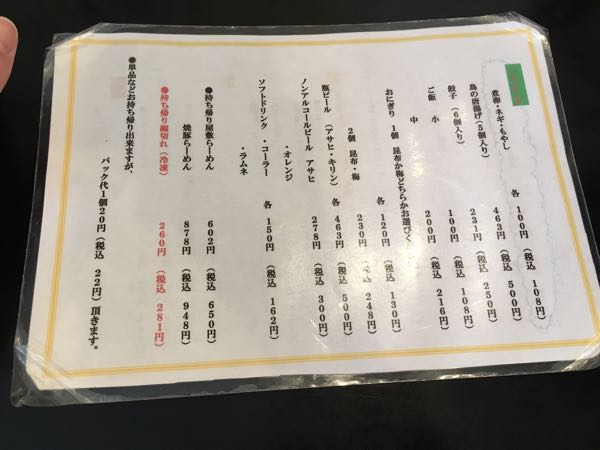 煮卵・ネギ・もやし 各 100円 (税込 108円)
鳥の唐揚げ(5個入り) 463円 (税込 500円)
餃子 (6個入り) 231円 (税込 250円)
ご飯 小 100円 (税込 108円)
中 200円 (税込 216円)
おにぎり 1個 昆布か梅どちらかお選びく 各 120円 (税込 130円)
2個 昆布・梅 230円 (税込 248円)
瓶ビール (アサヒ・キリン) 各 463円 (税込 500円)
ノンアルコールビール アサヒ 278円 (税込 300円)
・オレンジ
ソフトドリンク ・コーラー 各 150円 (税込 162円)
・ラムネ
●持ち帰り屋敷らーめん 602円 (税込 650円)
焼豚らーめん 878円 (税込 948円)
●持ち帰り細切れ (冷凍) 260円 (税込 281円)
●単品などお持ち帰り出来ますが、
パック代1個20円(税込 22円)頂きます。